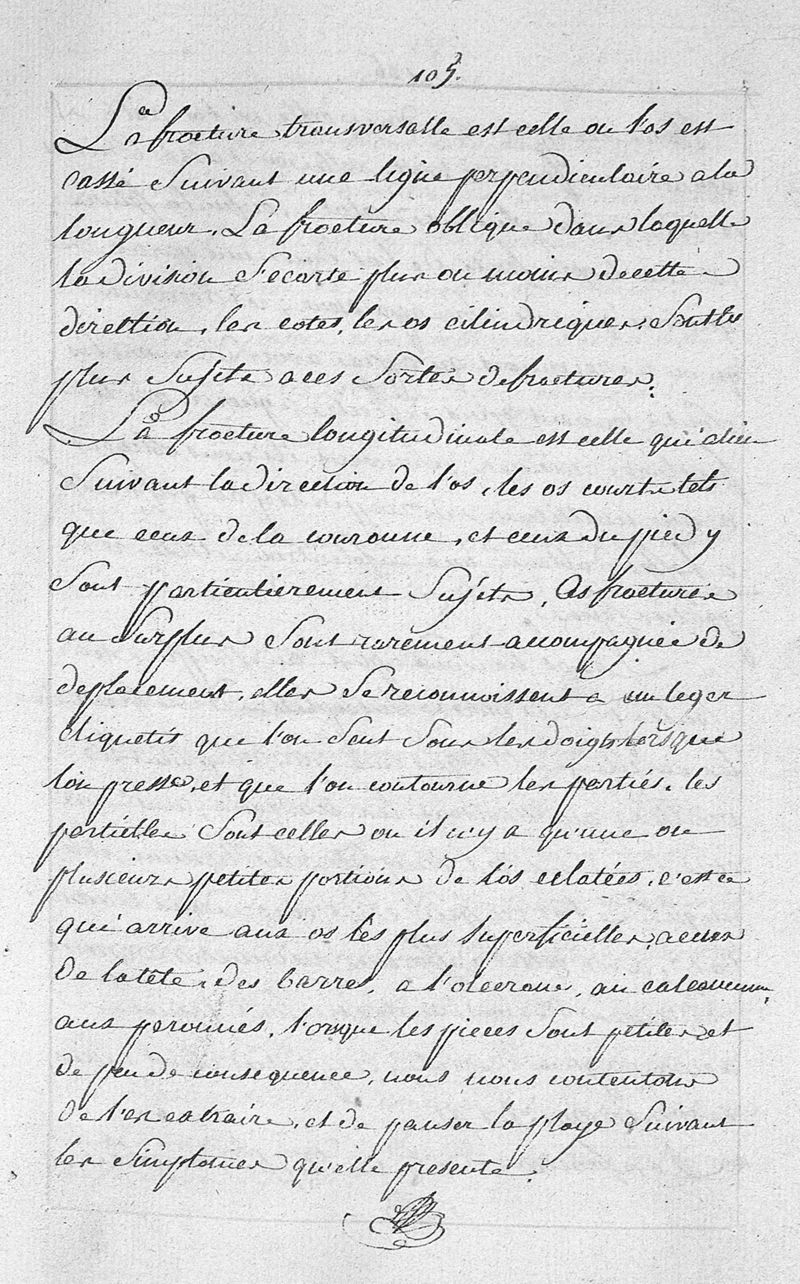 105.
La fracture transversalle est celle ou l'os est
cassé Suivant une ligne perpendiculaire a la
longueur. La fracture oblique dans laquelle
la division S'ecarte plus ou moins de cette
direttion, les cotes, les os cilindriques Sont les
plus Sujets a ces Sortes de fractures.
La fracture longitudinale est celle qui a lieu
Suivant la direction de l'os, les os courts tels
que ceux de la couronne, et ceux du pied y
Sont particulierement Sujets, Ces fractures
au Surplus Sont rarement accompagnée de
deplacement, elles Se reconnoissent a un leger
cliquetis que l'on Sent Sous les doigts lorsque
l'on presse, et que l'on contourne les parties. les
partielles Sont celles ou il n'y a qu'une ou
plusieurs petites portions de l'os eclatées, c'est ce
qui arrive aux os les plus Superficielles, a ceux
de la tête, des barres, a l'olecrane, au calcaneum,
aux peronnés, l'orsque les pieces Sont petites et
de peu de consequence, nous nous contentons
de l'es extraire, et de panser la playe Suivant
les Simptomes qu'elle presente.